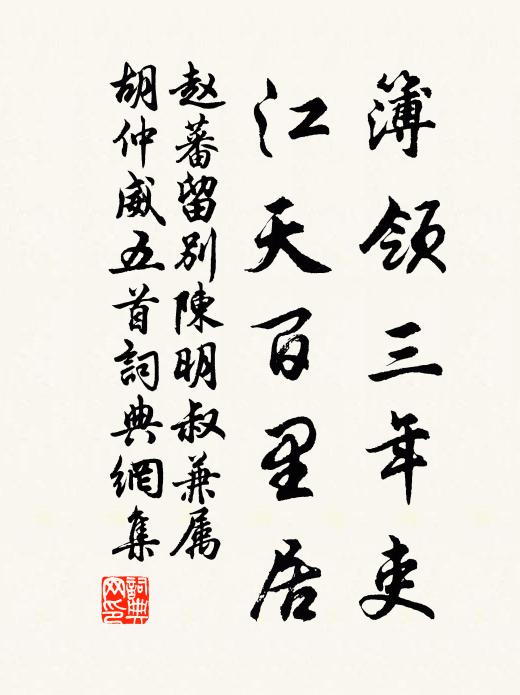 簿領三年吏
江天百里居
赵蕃留别陳明叔兼属
胡仲威五首詞典網集
詞典网印